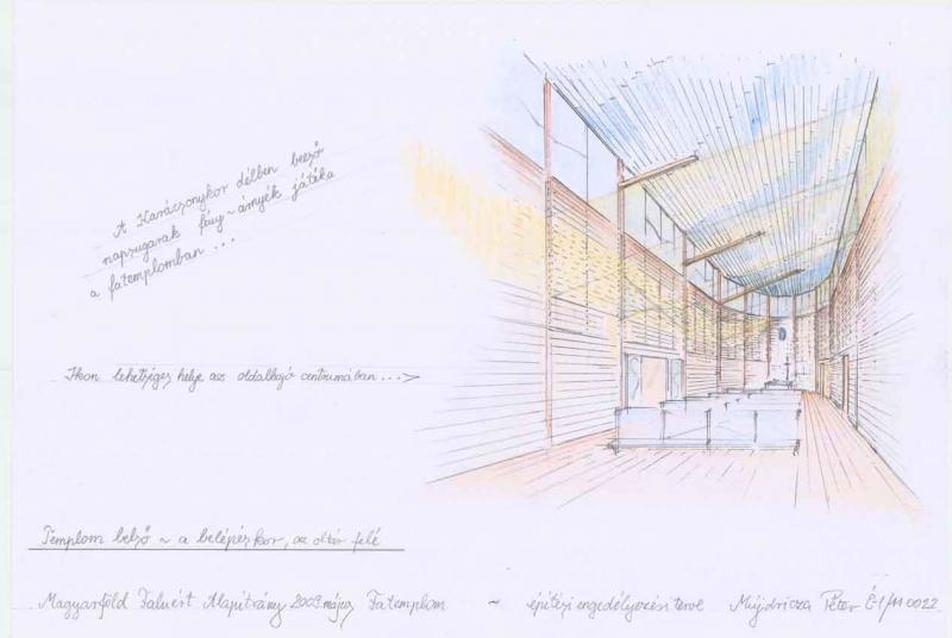 A Karácsonykor délben beeső
napsugarak fény ~ árnyék játéka
a fatemplomban ...
Ikon lehetséges helye az oldalhajó centrumában ...>
Templom belső ~ a belépéskor, az oltár felé
Magyarföld Faluért Alapítvány 2009. május Fatemplom ~ építési engedélyezési terve Mújdricza Péter É-1/11 0022